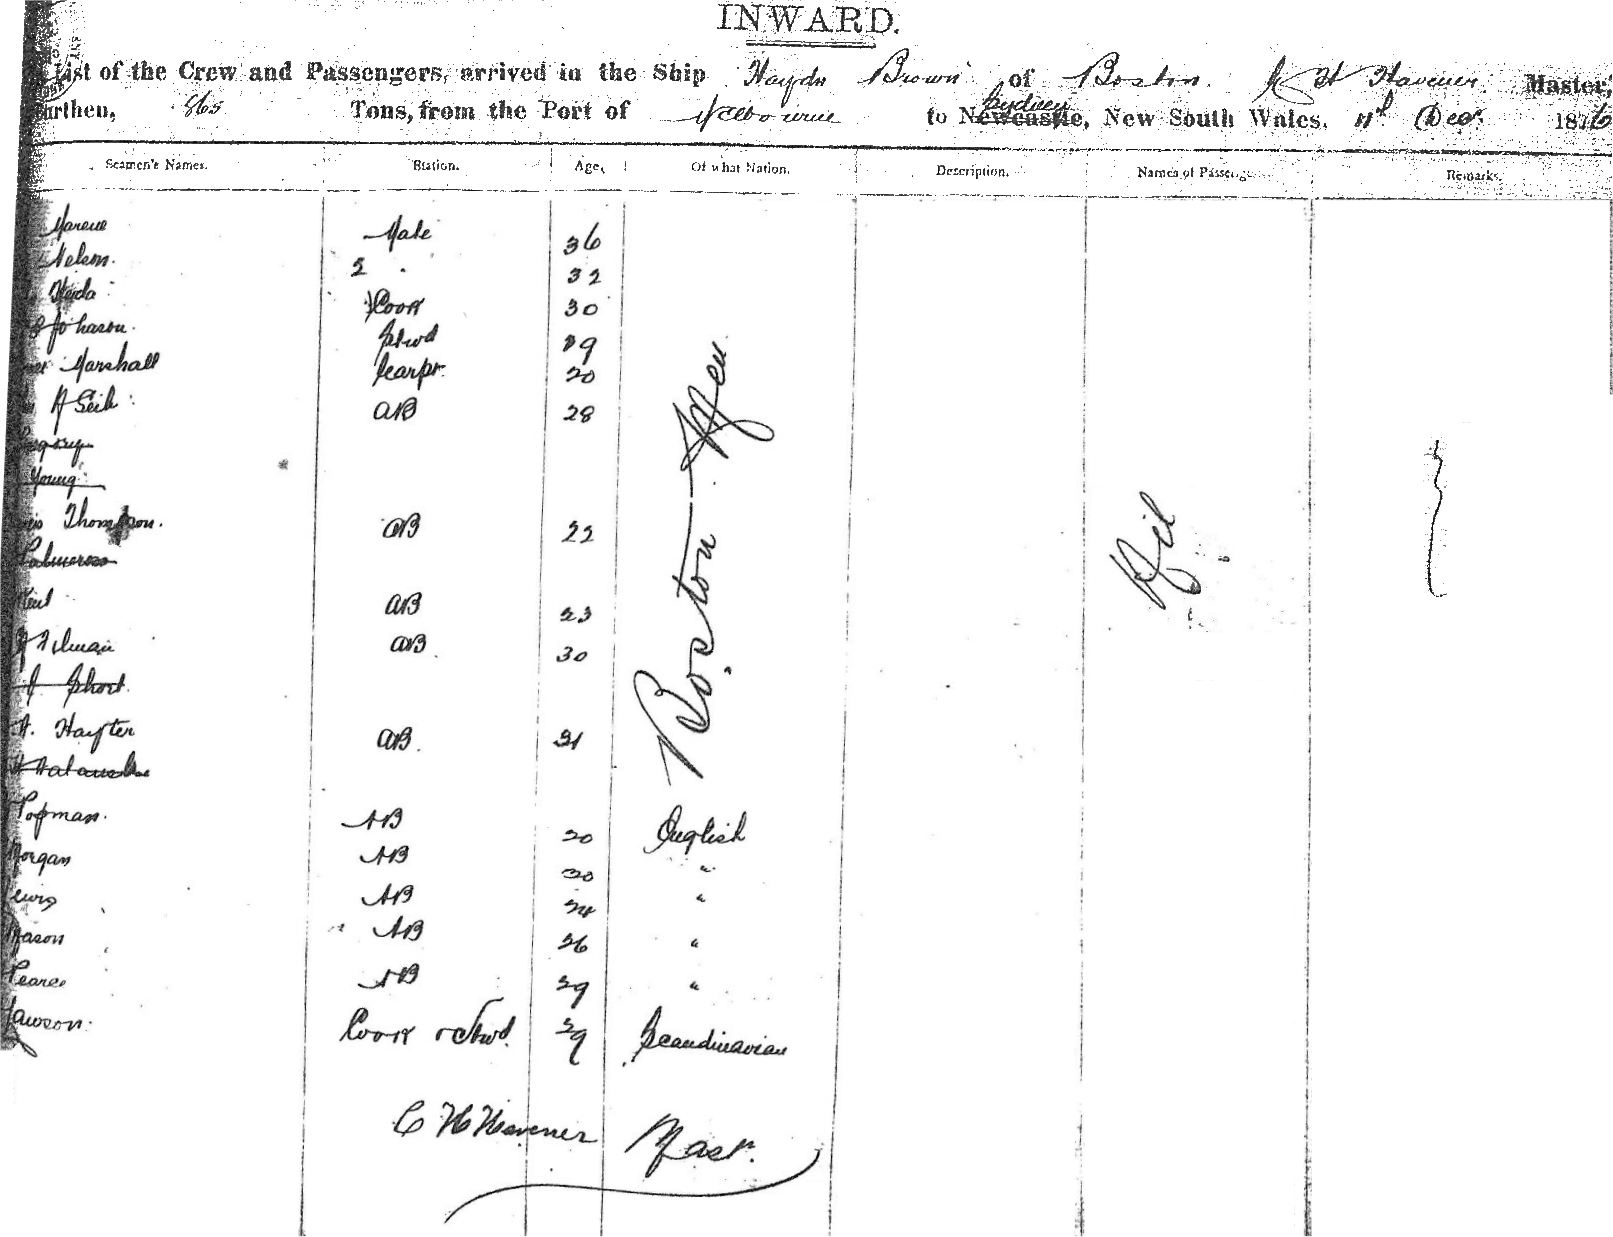 INWARD.
List of the Crew and Passengers, arrived in the Ship Haydn Brown of Boston. C H Havener Master,
Burthen, 865 Tons, from the Port of Melbourne to Newcastle Sydney, New South Wales, 11th Decr. 1876
Seamen's Names. Station. Age, Of what Nation. Description. Names of Passeng Remarks.
Mate 36
Nelson. 2 " 32
Cook 30
Johnson. Stwd 19
Marshall Carpr. 20
AB 28
Gregory
Young
Thompson. AB 22
Neil AB 23
AB 30
J Short
H. Hayter AB. 31
Boston Men
Nil
Popman. AB 20 English
Morgan AB 30 "
ewis AB 24 "
Mason AB 26 "
Pearce AB 29 "
Lawson. Cook & Stwd. 29 Scandinavian
C H Havener Mastr.